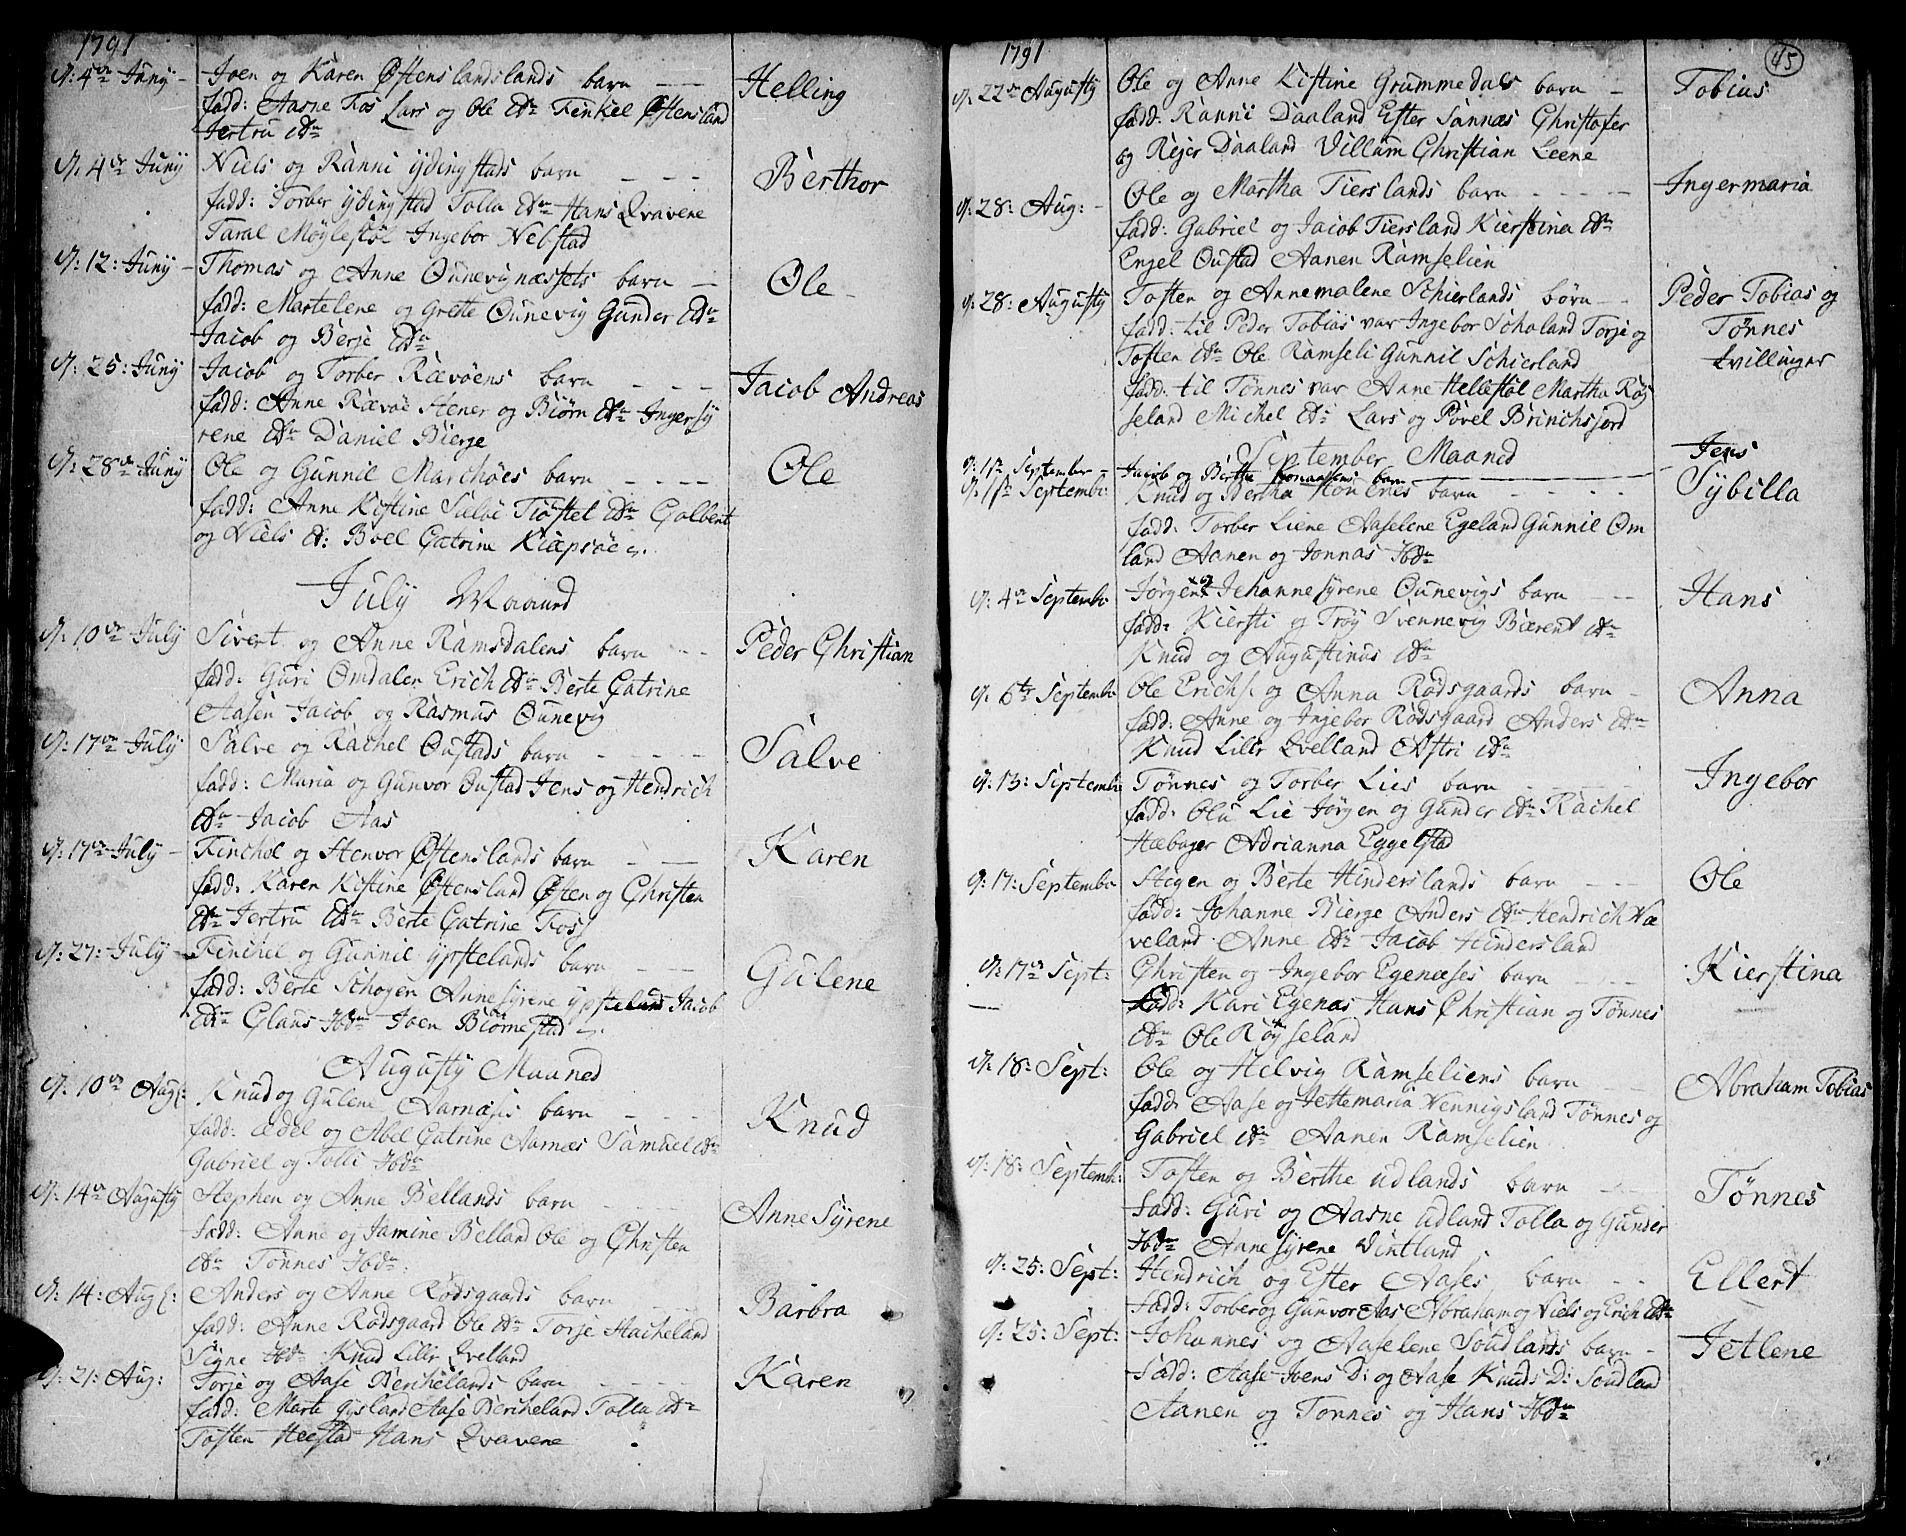 1791
d: 4de Juny - Joen og Karen Østenslandslands barn - - Helling
fadd: Aasne Fos Lars og Ole ibdm Finkel Østensland
Jertru ibdm
d. 4de Juny Niels og Ranni Ydingstads barn - - - Berthor
fadd: Torber Ydingstad Tolla ibdm Hans Qvavene
Taral Møylestøl Ingebor Nebstad
d: 12: Juny - Thomas og Anne Ounevignæssets barn - Ole -
fadd: Martelene og Grette Ounevig Gunder ibdm
Jacob og Berje ibdm
d: 25: Juny Jacob og Torber Rævøens barn - - - Jacob Andreas
fadd: Anne Rævøe Stener og Biørn ibdm Ingersy
rene ibdm Daniel Bierge
d: 28de Juny Ole og Gunnil Marchøes barn - - - - Ole
fadd: Anne Kistine Salve Tiøstel ibdm Golbent
og Niels ib: Boel Catrine Kiæpsøe
July Maaned
d: 10de July Sivert og Anne Ramsdalens barn - - Peder Christian
fadd: Guri Omdalen Erich ibdm Berte Catrine
Aasen Jacob og Rasmus Ounevig
d: 17de July Salve og Rachel Oustads barn - - - - Salve
fadd: Maria og Gunvor Oustad Jens og Hendrich
ibdm Jacob Aas
d: 17de July - Finchel og Stenvor Østenslands barn - - Karen
fadd: Karen Kistine Østensland Østen og Christen
ibdm Jertru ibdm Berte Catrine Foss
d: 27: July - Finchel og Gunnil Ypstelands barn - - Gulene
fadd: Berte Schogen Annesyrene Ypsteland Jacob
ibdm Claus Ibdm Joen Biørnestad
Augusty Maaned
d: 10de Aug: Knud og Gulene Aarnæsis barn - - - Knud
fadd: Ædel og Abel Catrine Aarnæs Samuel ibdm
Gabriel og Tolli Ibdm
d. 14de Augusty Stephen og Anne Bellands barn - - - - Anne Syrene
fadd: Anne og Jamine Belland Ole og Christen
ibdm Tønnes Ibdm.
d: 14: Aug: Anders og Anne Rødsgaards barn Barbra
fadd: Anne Rødsgaard Ole ibdm Torje Hacheland
Signe Ibdm Knud Lille Qvelland
d: 21: Aug: Torje og Aase Berchelands barn - - - - Karen
fadd: Marte Gysland Aase Bercheland Tolla ibdm
Tosten Heestad Hans Qvavene
1791
45
d. 22de Augusty Ole og Anne Kistine Grummedals barn - Tobias
fadd: Ranni Daaland Ester Sannæs Christofer
og Rejer Daaland Villam Christian Leene
d: 28: Aug: - Ole og Martha Tierslands barn - - - - Ingermaria
fadd: Gabriel og Jacob Tiersland Kierstina ibdm
Engel Oustad Aanen Ramselien
d: 28: Augusty Tosten og Annemalene Schierlands børn - - Peder Tobias og
Tønnes
tvillinger
fadd: til Peder Tobias var Ingebor Schaland Torje og
Tosten ibdm Ole Ramseli Gunnil Schierland
fadd: til Tønnes var Anne Hellestøl Martha Røy
seland Michel ibdm Lars og Povel Brinchsjord
September Maaned
d: 1ste September - Jacob og Birthe Konaassens barn Jens
d: 1ste Septembr Knud og Bertha Stoulenes barn - - - - Sybilla
fadd: Torber Liene Aaselene Egeland Gunnil Om
land Aanen og Jonnas Ibdm
d: 4de Septembr Jørgen og Johannesyrene Ounevigs barn - - Hans
fadd: Kiersti og Trøy Svennevig Biærent ibdm
Knud og Augustinus ibdm
d. 6te Septembr Ole Erichs. og Anna Rødsgaards barn - Anna
fadd: Anne og Ingebor Rødsgaard Anders ibdm
Knud Lille Qvelland Astri ibdm
d. 13: Septembr Tønnes og Torber Lies barn - - Ingebor
fadd: Olu Lie Jørgen og Gunder ibdm Rachel
Hæbager Adrianna Eggelstad
d: 17: Septembr Stigen og Berte Hinderslands barn - - Ole
fadd: Johanne Bierge Anders ibdm Hendrich Næ
veland Anne ibdm Jacob Hindersland
d: 17de Sept: Christen og Ingebor Egenæses barn - - - Kierstina
fadd: Kari Egenæs Hans Christian og Tønnes
ibdm Ole Røyseland
d: 18: Sept: Ole og Helvig Ramseliens barn - - Abraham Tobias
fadd: Aase og Jettemaria Vennigsland Tønnes og
Gabriel ibdm Aanen Ramselien
d. 18: Septemb: Tosten og Berthe Udlands barn - - - Tønnes
fadd: Guri og Aasne Udland Tolla og Gunder
Ibdm Annesyrene Vintland
d: 25: Sept: Hendrich og Ester Aases barn - - Ellert
fadd: Torber og Gunvor Aas Abraham og Niels og Erich ibdm
d: 25: Sept: Johannes og Aaselene Soudlands barn - Jetlene
fadd: Aase Joens D: og Aase Knuds D: Soudland
Aanen og Tønnes og Hans Ibdm